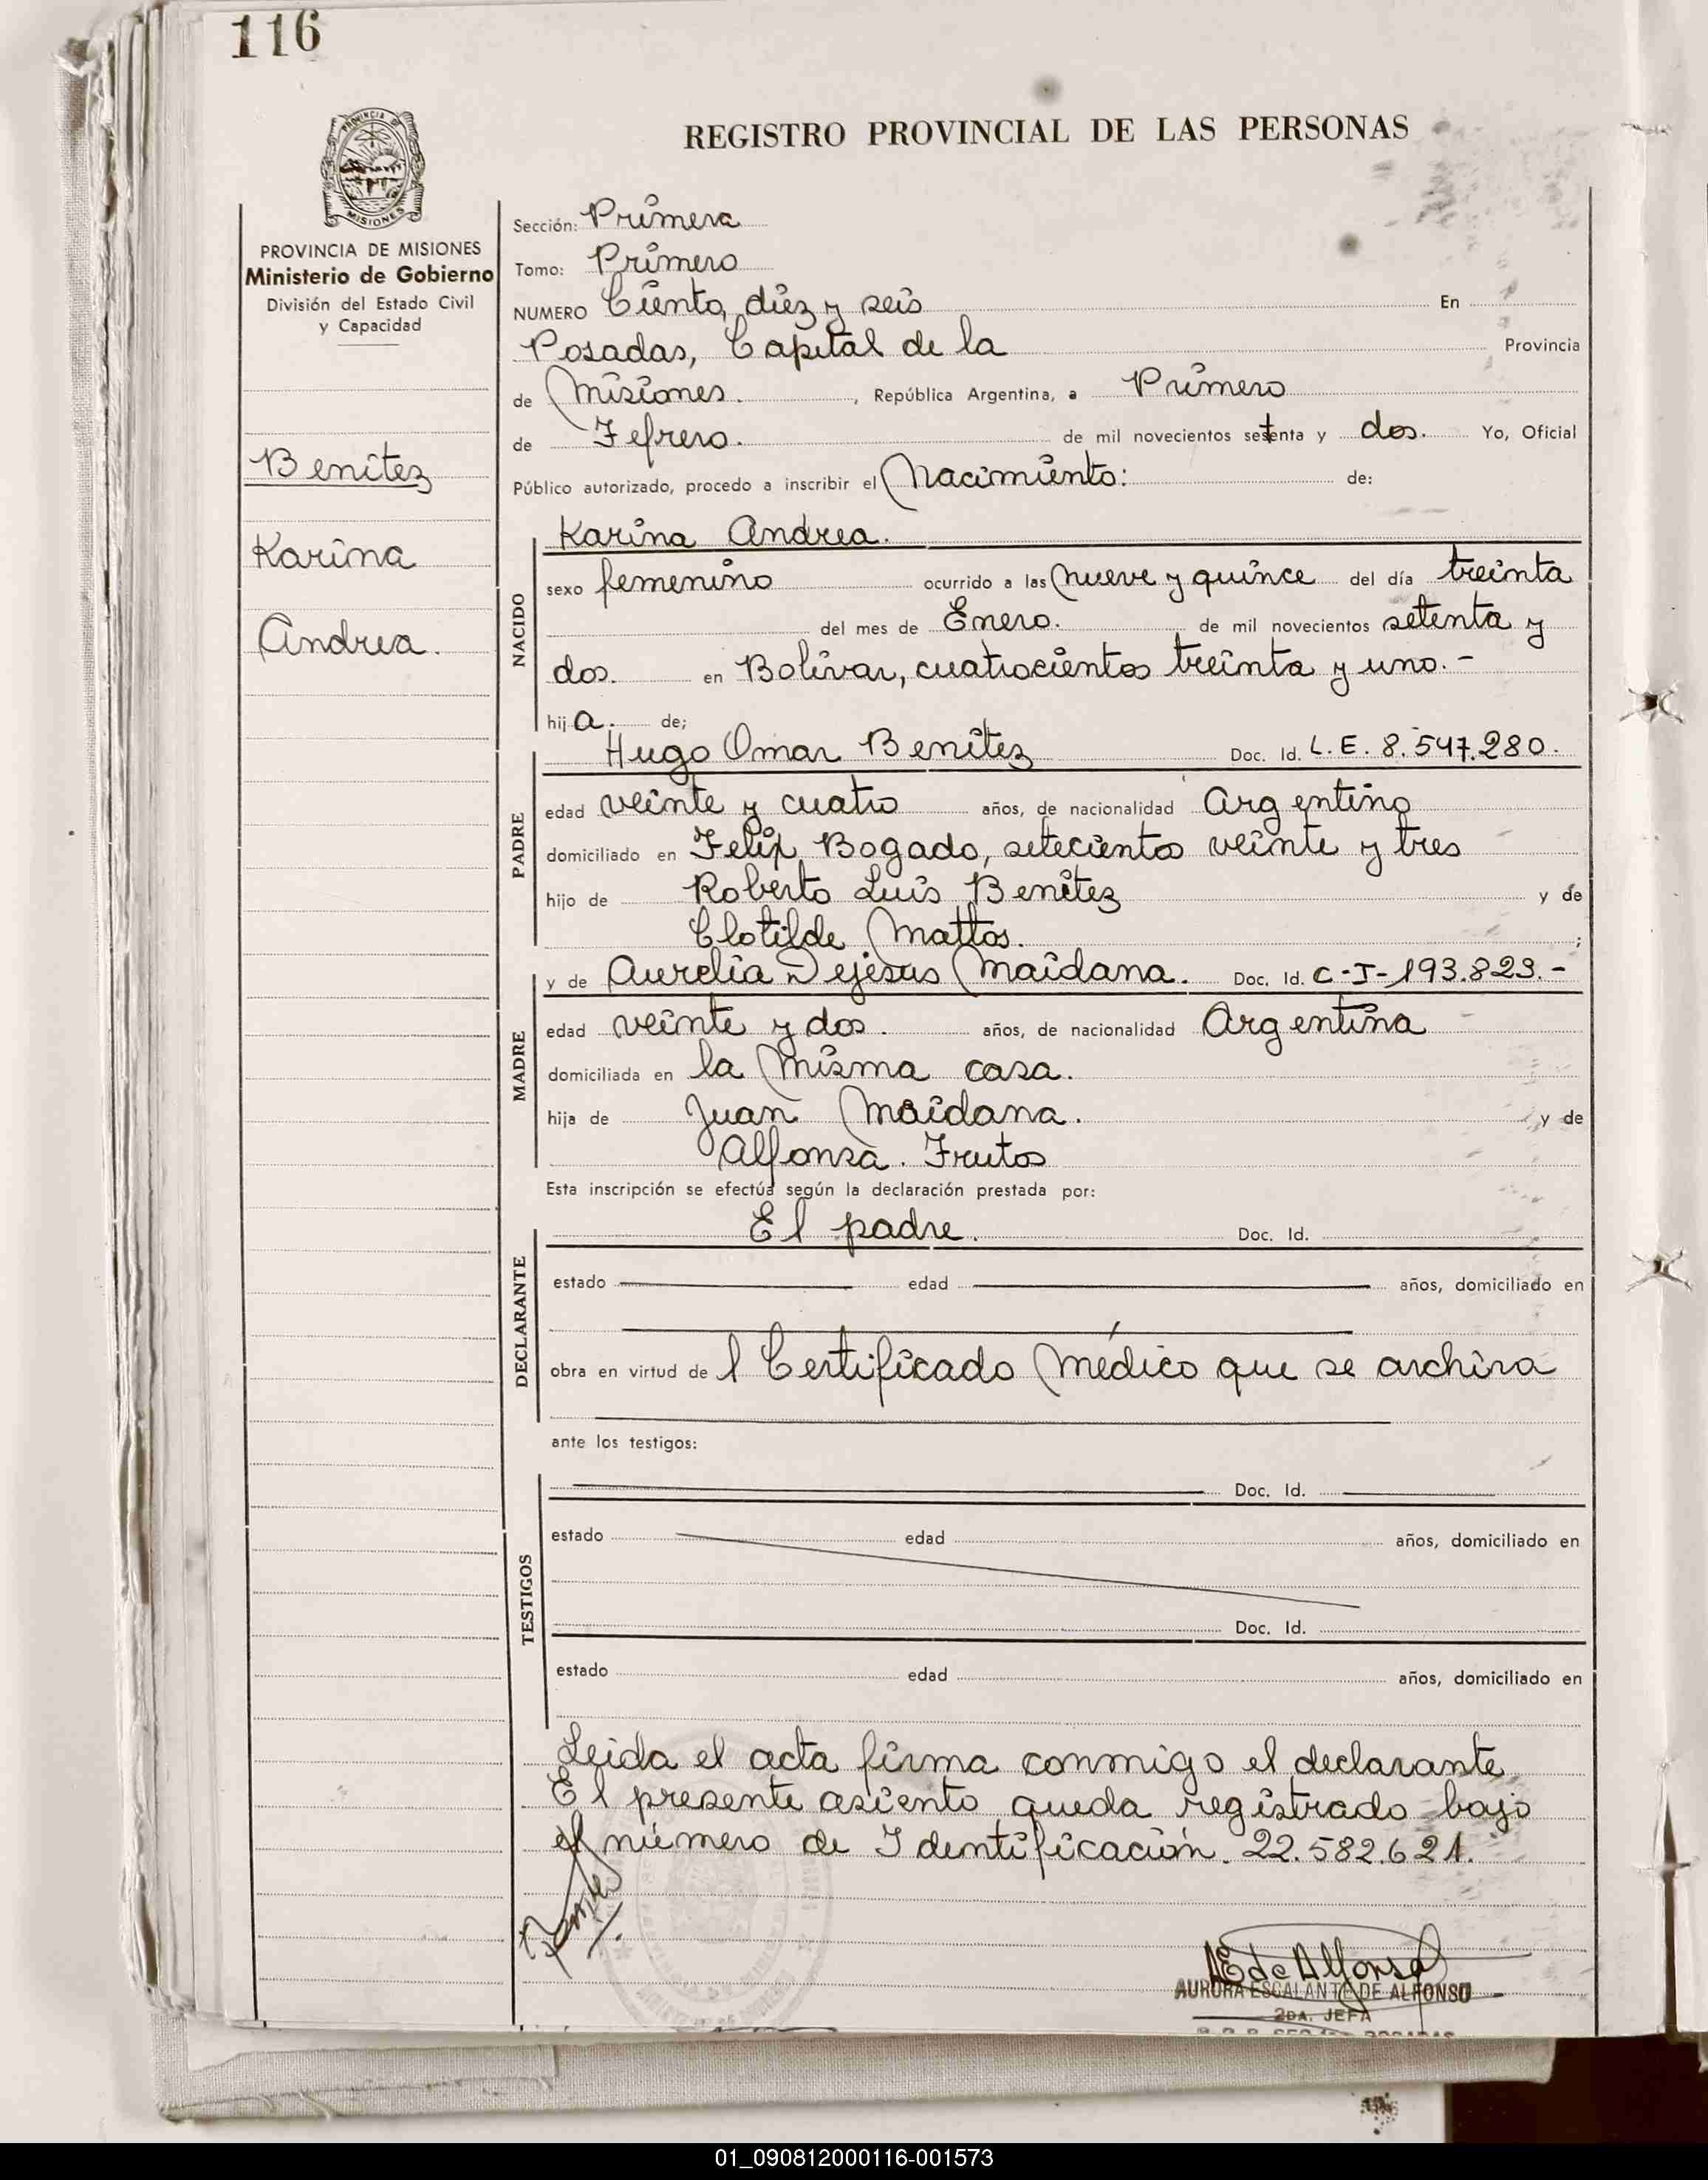 116
REGISTRO PROVINCIAL DE LAS PERSONAS
PROVINCIA DE MISIONES
Ministerio de Gobierno
División del Estado Civil
y Capacidad
Benítez
Karina
Andrea.
Sección: Primera
Tomo: Primero
NUMERO Ciento, diez y seis En
Posadas, Capital de la Provincia
de Misiones. , República Argentina, a Primero
de Febrero. de mil novecientos setenta y dos. Yo, Oficial
Público autorizado, procedo a inscribir el Nacimiento: de:
NACIDO
Karina Andrea.
sexo femenino ocurrido a las nueve y quince del día treinta
del mes de Enero. de mil novecientos setenta y
dos. en Bolívar, cuatrocientos treinta y uno.-
hija. de;
PADRE
Hugo Omar Benítez Doc. Id. L.E. 8.547.280.
edad veinte y cuatro años, de nacionalidad Argentino
domiciliado en Felix Bogado, setecientos veinte y tres
hijo de Roberto Luis Benítez y de
Clotilde Mattos. ;
MADRE
y de Aurelia Dejesus Maidana. Doc. Id. C-I-193.823.-
edad veinte y dos. años, de nacionalidad Argentina
domiciliada en la Misma casa.
hija de Juan Maidana. y de
Alfonsa. Frutos
Esta inscripción se efectúa según la declaración prestada por:
DECLARANTE
El padre. Doc. Id.
estado edad años, domiciliado en
obra en virtud del Certificado Médico que se archiva
ante los testigos:
TESTIGOS
Doc. Id.
estado edad años, domiciliado en
Doc. Id.
estado edad años, domiciliado en
Leida el acta firma conmigo el declarante
El presente asiento queda registrado bajo
el número de Identificación. 22.582.621.
AE de Alfonso
AURORA ESCALANTE DE ALFONSO
2DA. JEFA
01_090812000116-001573